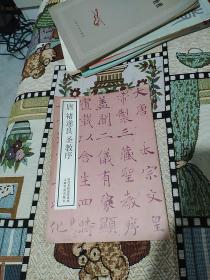 唐褚遂良圣教序
大唐太宗文皇
帝製三藏聖教序
盖聞二儀有像顯
載以含生四時
化